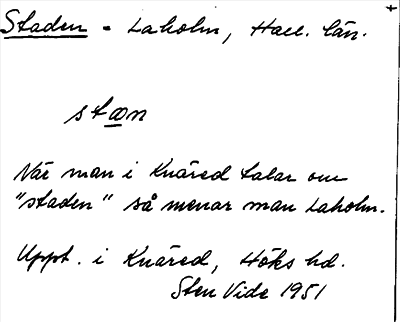 Staden - Laholm, Hall. län.
stæn
När man i Knäred talar om
"staden" så menar man Laholm.
Uppt. i Knäred, Höks hd.
Sten Vide 1951